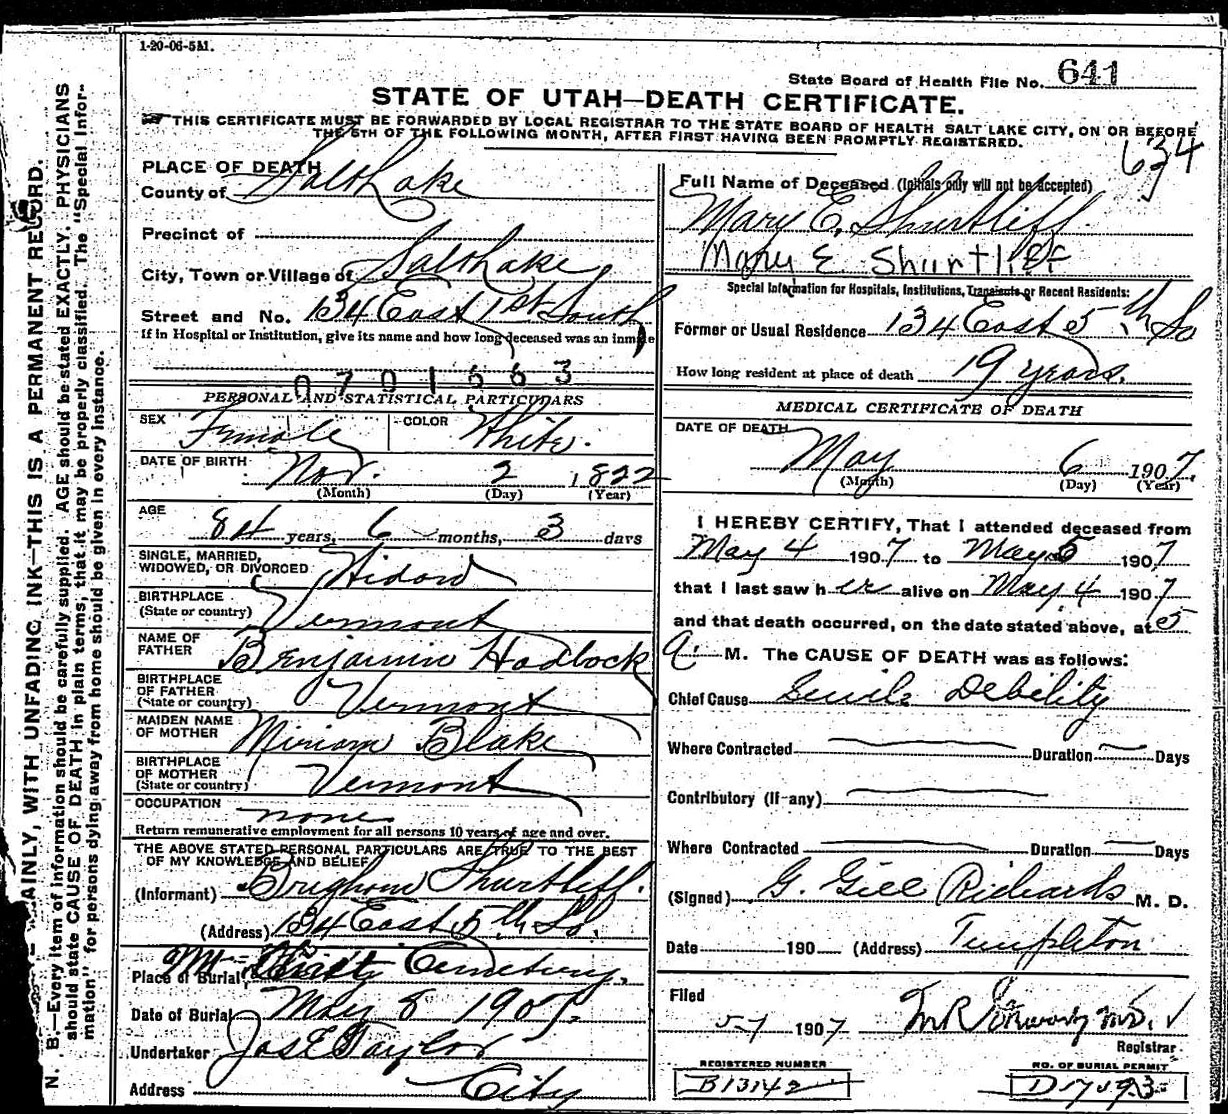 1-20-06-5M.
State Board of Health File No. 641
STATE OF UTAH—DEATH CERTIFICATE.
THIS CERTIFICATE MUST BE FORWARDED BY LOCAL REGISTRAR TO THE STATE BOARD OF HEALTH SALT LAKE CITY, ON OR BEFORE
THE 5TH OF THE FOLLOWING MONTH, AFTER FIRST HAVING BEEN PROMPTLY REGISTERED.
634
N. B.—Every item of information should be carefully supplied. AGE should be stated EXACTLY, PHYSICIANS
should state CAUSE OF DEATH in plain terms, that it may be properly classified. The "Special Infor-
mation" for persons dying away from home should be given in every instance.
AINLY, WITH UNFADING INK—THIS IS A PERMANENT RECORD.
PLACE OF DEATH
County of Salt Lake
Precinct of
City, Town or Village of Salt Lake
Street and No. 134 East 1st South
If in Hospital or Institution, give its name and how long deceased was an inmate
0701663
PERSONAL AND STATISTICAL PARTICULARS
SEX Female COLOR White.
DATE OF BIRTH Nov. 2 1822
(Month) (Day) (Year)
AGE 84 years, 6 months, 3 days
SINGLE, MARRIED,
WIDOWED, OR DIVORCED Widow
BIRTHPLACE
(State or country) Vermont
NAME OF
FATHER Benjamin Hadlock
BIRTHPLACE
OF FATHER
(State or country) Vermont
MAIDEN NAME
OF MOTHER Miriam Blake
BIRTHPLACE
OF MOTHER
(State or country) Vermont
OCCUPATION none
Return remunerative employment for all persons 10 years of age and over.
THE ABOVE STATED PERSONAL PARTICULARS ARE TRUE TO THE BEST
OF MY KNOWLEDGE AND BELIEF
(Informant) Brigham Shurtliff.
(Address) 134 East 5th So.
Place of Burial Cemetery.
Date of Burial May 8 1907.
Undertaker Jos E Taylor
Address City
Full Name of Deceased (Initials only will not be accepted)
Mary E. Shurtliff
Mary E Shurtliff
Special Information for Hospitals, Institutions, Transients or Recent Residents:
Former or Usual Residence 134 East 5th So
How long resident at place of death 19 years.
MEDICAL CERTIFICATE OF DEATH
DATE OF DEATH
May 6 1907.
(Month) (Day) (Year)
I HEREBY CERTIFY, That I attended deceased from
May 4 1907 to May 5 1907
that I last saw her alive on May 4 1907
and that death occurred, on the date stated above, at 5
a M. The CAUSE OF DEATH was as follows:
Chief Cause Senile Debility
Where Contracted Duration Days
Contributory (If any)
Where Contracted Duration Days
(Signed) G. Gill Richards M. D.
Date 190 (Address) Templeton
Filed
5-7 1907
Registrar
REGISTERED NUMBER
B13142
NO. OF BURIAL PERMIT